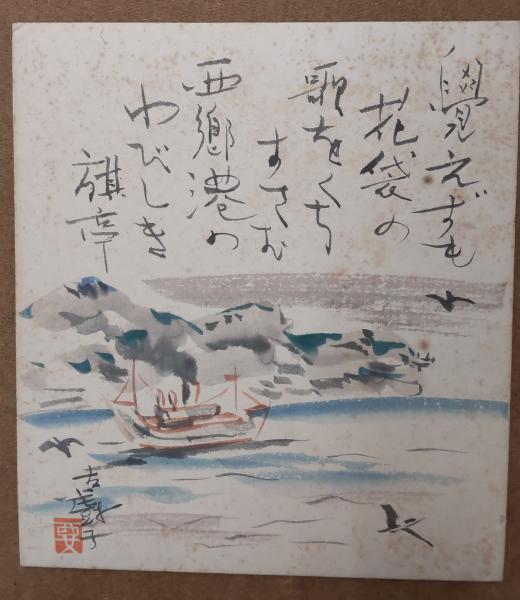 覺えずも
花袋の
歌をくち
すさむ
西郷港の
わびしき
旗亭